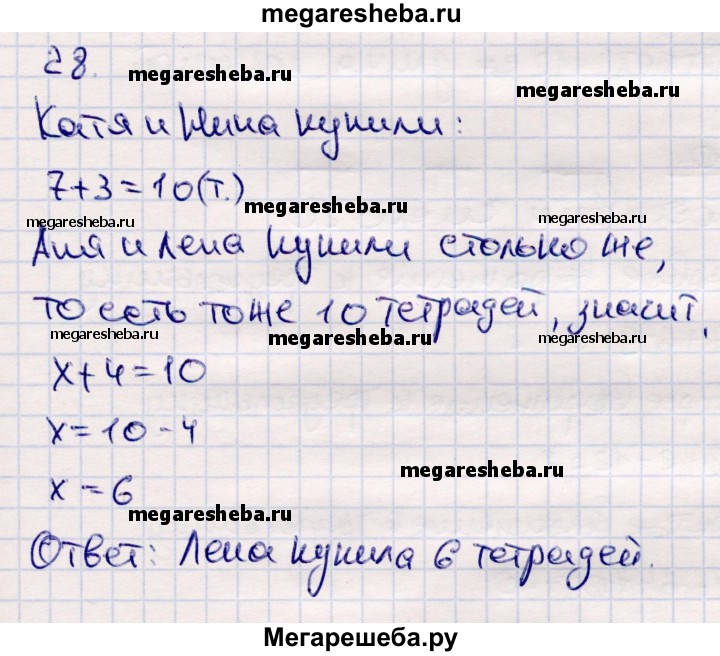 megaresheba.ru
28.
megaresheba.ru
megaresheba.ru
Катя и Нина купили:
7+3=10(т.)
megaresheba.ru
megaresheba.ru
megaresheba.ru
Аня и Лена купили столько же,
то есть тоже 10 тетрадей, значит,
megaresheba.ru
megaresheba.ru
megaresheba.ru
x+4=10
x=10-4
x=6
megaresheba.ru
megaresheba.ru
Ответ: Лена купила 6 тетрадей.
Мегарешеба.ру